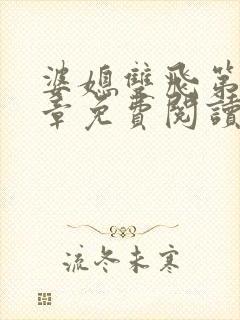 婆媳雙飛第
章免費閱讀
流冬未寒